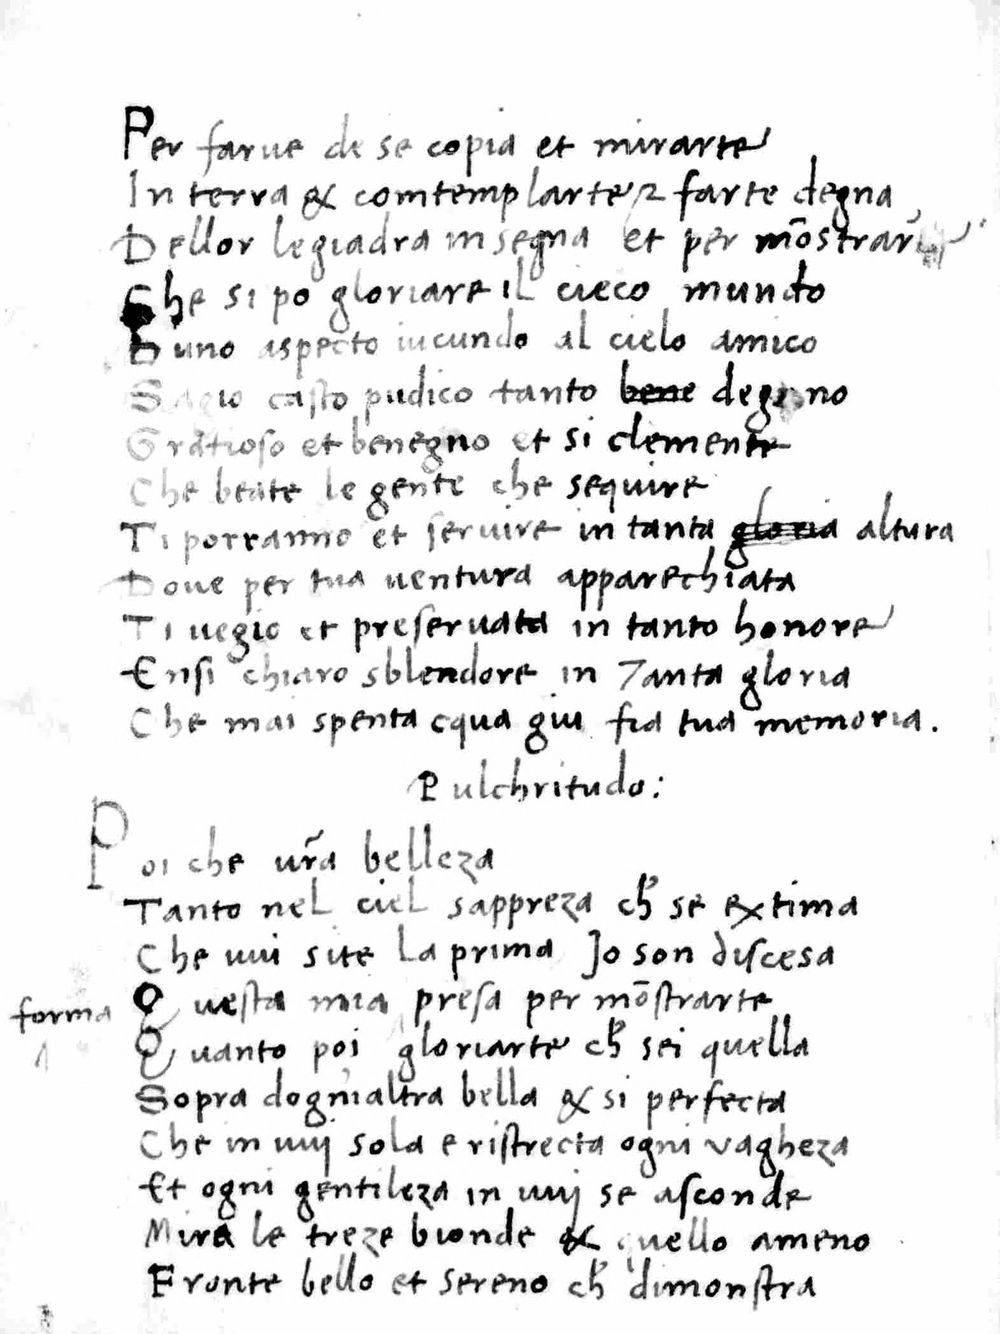 Per farue de se copia et mirarte
In terra & comtemplarte 2 farte degna
Dellor legiadra insegna et per mõstrar
Che si po gloriare il cieco mundo
Duno aspecto iucundo al cielo amico
Sagio casto pudico tanto bene degno
Gratioso et benegno et si clemente
Che beate le gente che sequire
Ti porranno et seruire in tanta gloria altura
Doue per tua uentura apparechiata
Ti uegio et preseruata in tanto honore
En si chiaro sblendore in Tanta gloria
Che mai spenta cqua giu fia tua memoria.
Pulchritudo:
Poi che ur̃a belleza
Tanto nel ciel sappreza ch̃ se extima
Che uui site la prima Jo son discesa
Questa mia presa per mõstrarte
forma
Quanto poi gloriarte ch̃ sei quella
Sopra dognialtra bella & si perfecta
Che in uuj sola e ristrecta ogni vagheza
Et ogni gentileza in uuj se asconde
Mira le treze bionde & quello ameno
Fronte bello et sereno ch̃ dimonstra